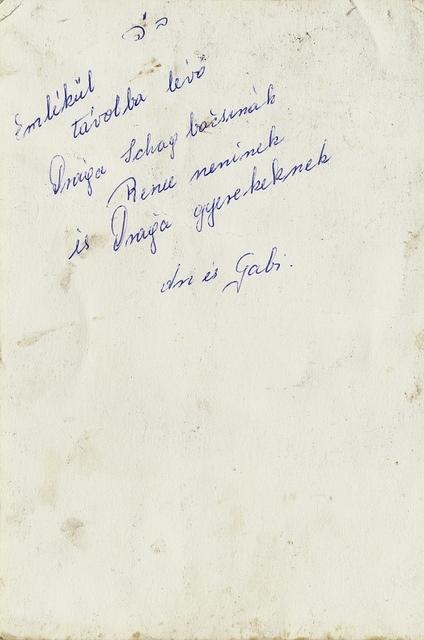 ב"ה
Emlékül
távolba lévő
Drága Schag bácsinák
Renee neninek
és Drága gyerekeknek
és Gabi.